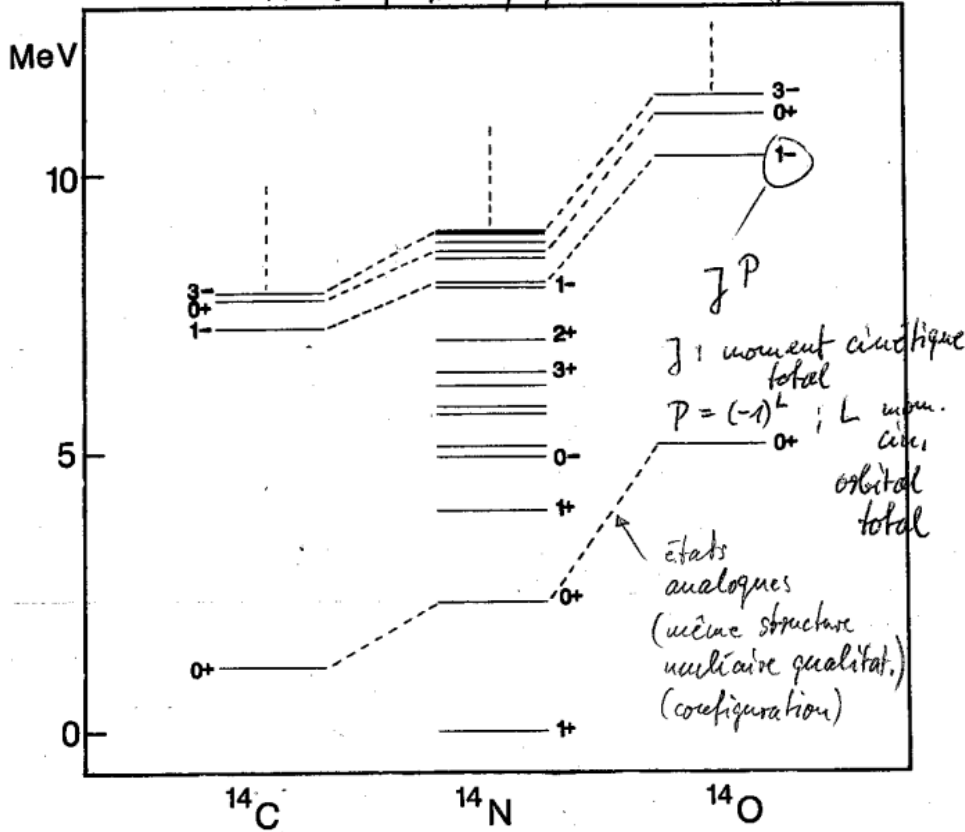 MeV
10
5
0
3-
0+
1-
0+
1-
2+
3+
0-
1+
0+
1+
3-
0+
1-
0+
J P
J : moment cinétique
total
P = (-1)^L ; L mom.
cin.
orbital
total
états
analogues
(même structure
nucléaire qualitat.)
(configuration)
14C
14N
14O